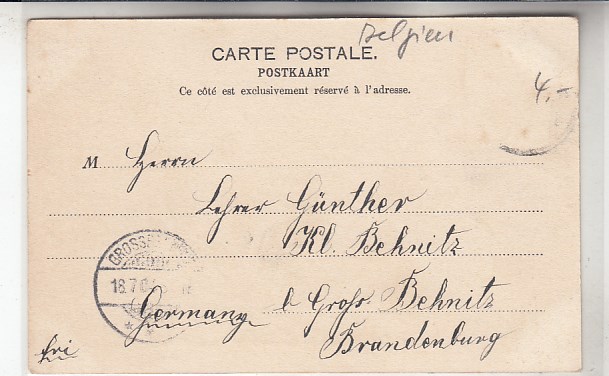 Belgien
CARTE POSTALE.
POSTKAART
Ce côté est exclusivement réservé à l'adresse.
4.-
M Herrn
Lehrer Günther
Kl. Behnitz
18.7.0
Germany b Groß. Behnitz
Brandenburg